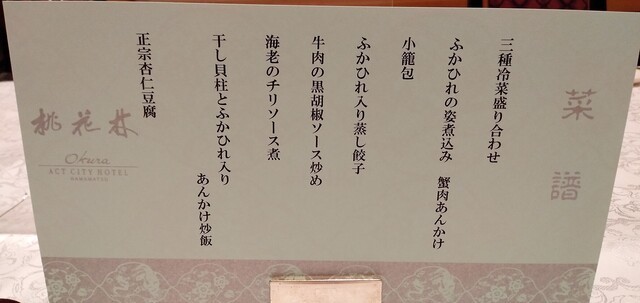 菜譜
三種冷菜盛り合わせ
ふかひれの姿煮込み 蟹肉あんかけ
小籠包
ふかひれ入り蒸し餃子
牛肉の黒胡椒ソース炒め
海老のチリソース煮
干し貝柱とふかひれ入り
あんかけ炒飯
正宗杏仁豆腐
桃花林
Okura
ACT CITY HOTEL
HAMAMATSU